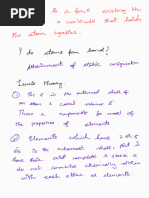 is a force existing btw
a molecule that holds
the atoms together.
? do atoms form bond?
Attainment of stable configuration
Lewis theory
① The e⁻ in the outermost shell of
an atom is called valence e⁻.
These r responsible for most of
the properties of elements
② Elements which have 2 or 8
e⁻ in the outermost shell, that
have their valet complete & stable &
do not combine chemically either
with each other or elements